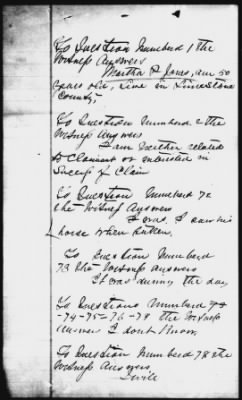 To Question Numberd 1 the
Witness Answers
Martha P Jones, am 50
years old, live in Limestone
County,
To Question Numberd 2 the
Witness Answers
I am neither related
to Claimant or interested in
Success of Claim
To Question Numberd 72
the Witness Answers
I was. I saw his
horse when taken.
To Question Numberd
73 the Witness answers
It was during the day
To Questions Numberd
-74-75-76-77 the Witness
answer I dont Know
To Question Numberd 78 the
Witness Answers